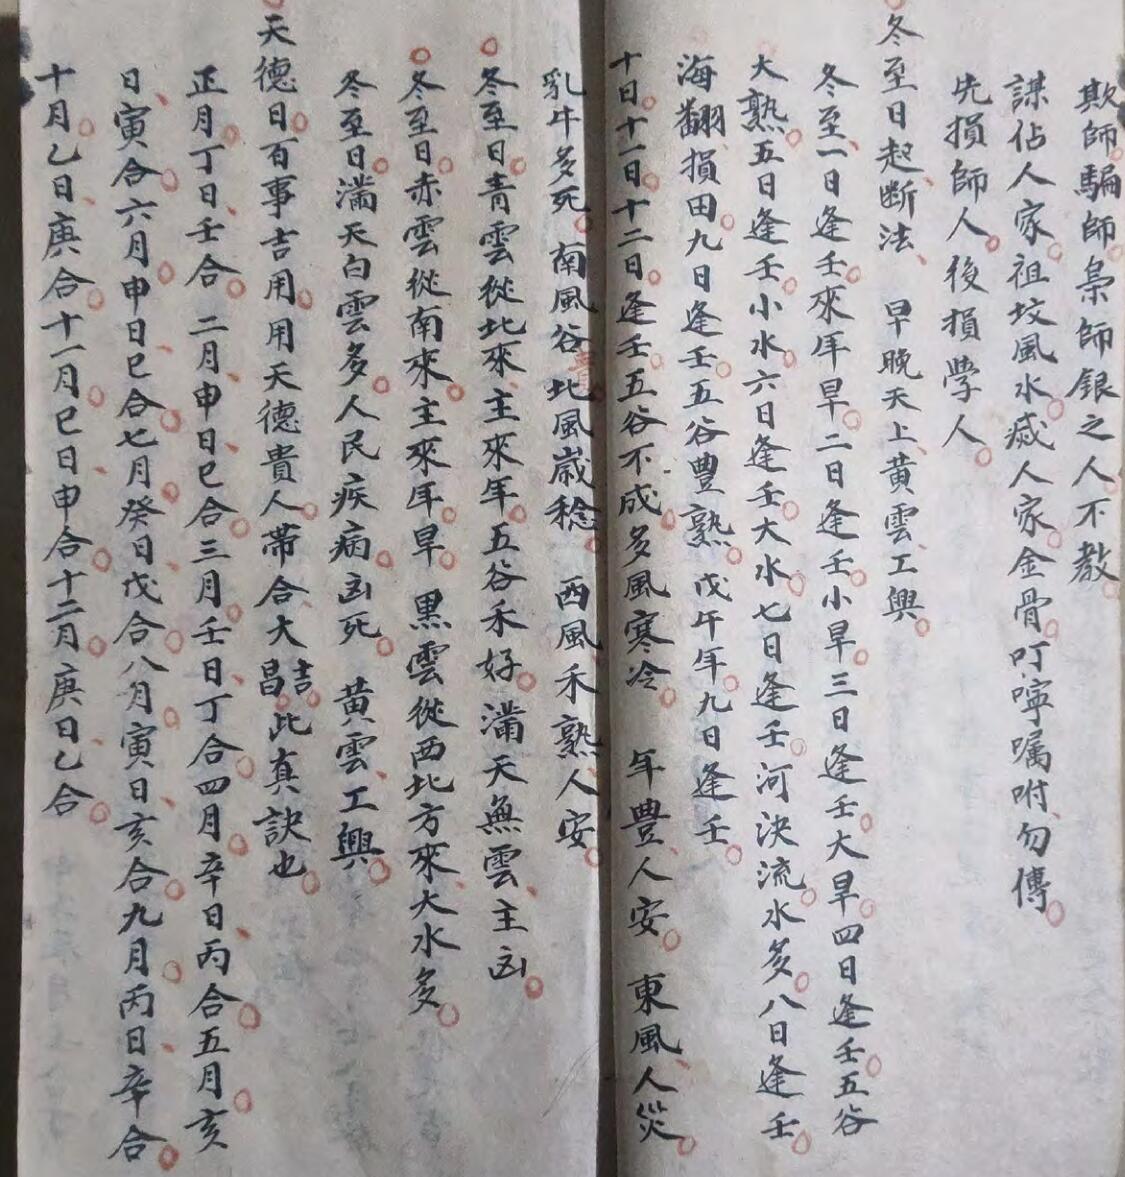 欺師騙師梟師銀之人不教
謀佔人家祖坟風水滅人家金骨叮嚀嘱咐勿傳
先損師人後損學人
冬至日起断法 早晚天上黄雲工興
冬至一日逢壬來年旱二日逢壬小旱三日逢壬大旱四日逢壬五谷
大熟五日逢壬小水六日逢壬大水七日逢壬河决流水多八日逢壬
海翻損田九日逢壬五谷豐熟戊午年九日逢壬
十日十一日十二日逢壬五谷不成多風寒冷 年豐人安 東風人災
乳牛多死 南風谷貴北風歲稔 西風禾熟人安
冬至日青雲從北來主來年五谷禾好滿天無雲主凶
冬至日赤雲從南來主來年旱 黑雲從西北方來大水多
冬至日滿天白雲多人民疾病凶死 黄雲工興
天德日百事吉用用天德貴人帶合大吉昌此真訣也
正月丁日壬合 二月申日巳合三月壬日丁合四月辛日丙合五月亥
日寅合六月申日巳合七月癸日戊合八月寅日亥合九月丙日辛合
十月乙日庚合十一月巳日申合十二月庚日乙合